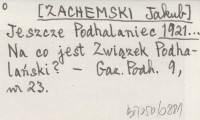 [ZACHEMSKI Jakub]
Jeszcze Podhalaniec 1921...
Na co jest Związek Podha-
lański? – Gaz. Podh. 9,
nr 23.